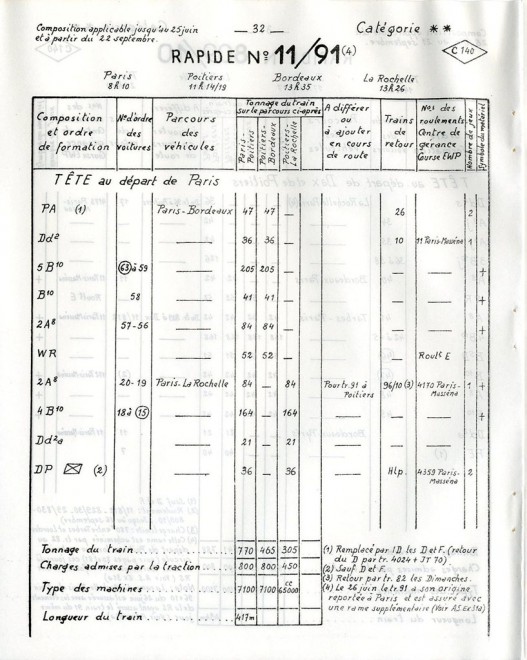 Composition applicable jusqu'au 25 juin
et à partir du 22 septembre.
— 32 —
Catégorie **
RAPIDE Nº 11/91 (4)
C 140
Paris Poitiers Bordeaux La Rochelle
8h10 11h14/19 13h35 13h26
Composition et ordre de formation
Nºs d'ordre des voitures
Parcours des véhicules
Tonnage du train sur le parcours ci-après
Paris-Poitiers
Poitiers-Bordeaux
Poitiers-La Rochelle
A différer ou à ajouter en cours de route
Trains de retour
Nos des roulements Centre de gerance Course EWP
Nombre de jeux
Symbole du matériel
TÊTE au départ de Paris
PA (1) Paris-Bordeaux 47 47 — 26 2
Dd² — 36 36 — 10 11 Paris-Masséna 1
5 B¹⁰ 63 à 59 — 205 205 — — +
B¹⁰ 58 — 41 41 — — +
2A⁸ 57-56 — 84 84 — — +
WR — 52 52 — — Roulᵗ E
2A⁸ 20-19 Paris-La Rochelle 84 — 84 Pour tr. 91 à Poitiers 96/10 (3) 4170 Paris-Masséna 1 +
4 B¹⁰ 18 à 15 — 164 — 164 — — +
Dd²a — 21 — 21 — —
DP (2) — 36 — 36 — Hlp. 4359 Paris-Masséna 2
Tonnage du train 770 465 305
Charges admises par la traction 800 800 450
Type des machines 7100 7100 CC 65000
Longueur du train 417m
(1) Remplacé par 1D. les D et F. (retour
du D par tr. 4024 + JT 70)
(2) Sauf D et F.
(3) Retour par tr. 82 les Dimanches.
(4) Le 26 juin le tr. 91 a son origine
reportée à Paris et est assuré avec
une rame supplémentaire (Voir AS.Ex 31a)